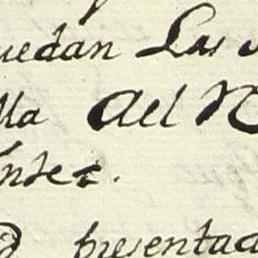 uedan Las
lla del N
ntes.
presentad